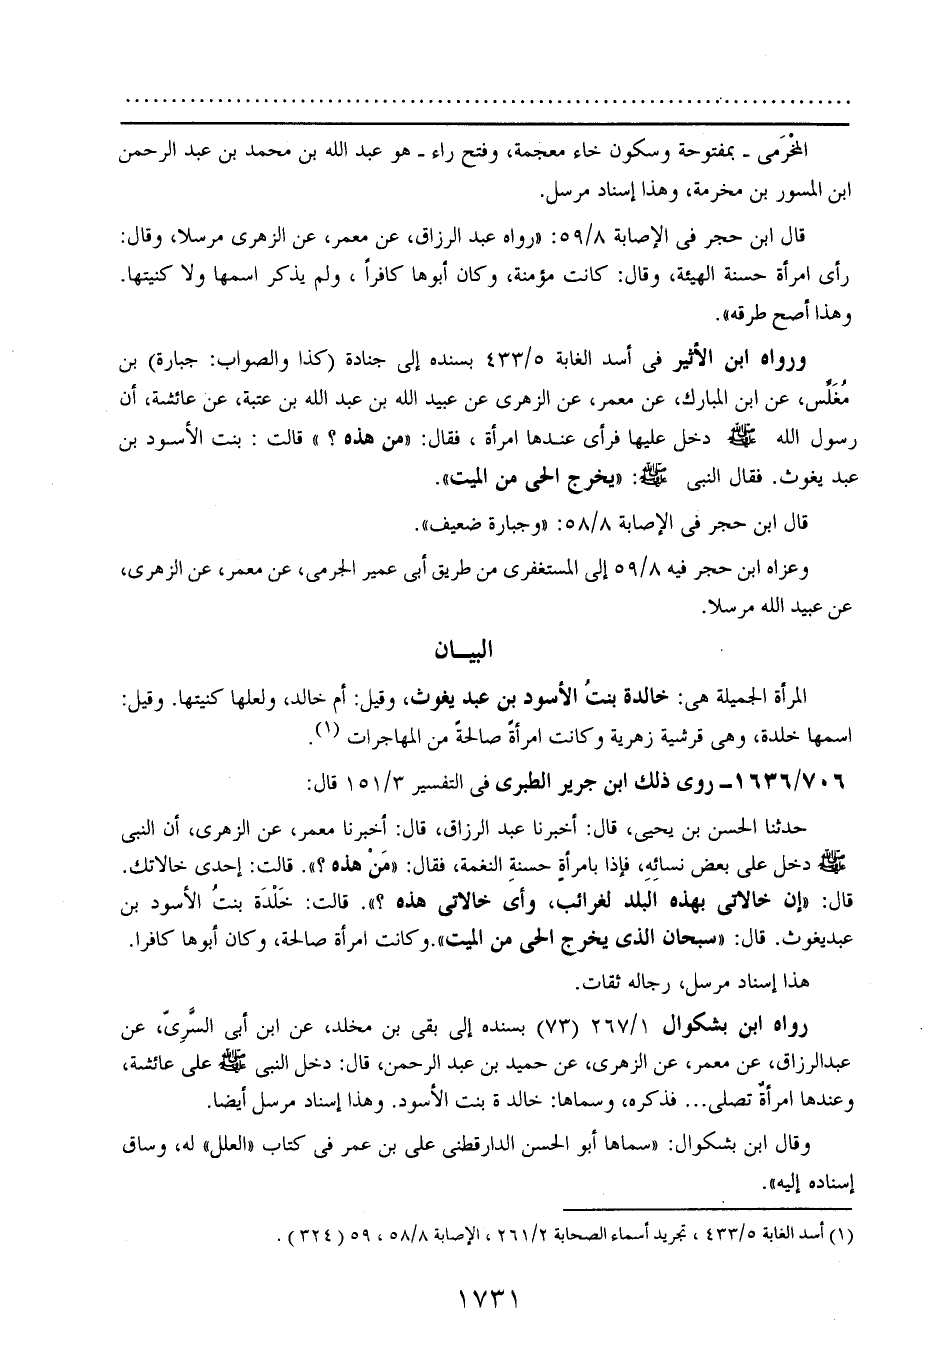 المخْرَمى ـ بمفتوحة وسكون خاء معجمة، وفتح راء ـ هو عبد الله بن محمد بن عبد الرحمن
ابن المسور بن مخرمة، وهذا إسناد مرسل.
قال ابن حجر فى الإصابة ٥٩/٨: «رواه عبد الرزاق، عن معمر، عن الزهرى مرسلا، وقال:
رأى امرأة حسنة الهيئة، وقال: كانت مؤمنة، وكان أبوها كافراً ، ولم يذكر اسمها ولا كنيتها.
وهذا أصح طرقه».
ورواه ابن الأثير فى أسد الغابة ٤٣٣/٥ بسنده إلى جنادة (كذا والصواب: جبارة) بن
مُغَلِّس، عن ابن المبارك، عن معمر، عن الزهرى عن عبيد الله بن عبد الله بن عتبة، عن عائشة، أن
رسول الله ﷺ دخل عليها فرأى عندها امرأة ، فقال: «من هذه ؟ » قالت : بنت الأسود بن
عبد يغوث. فقال النبى ﷺ: «يخرج الحى من الميت».
قال ابن حجر فى الإصابة ٥٨/٨: «وجبارة ضعيف».
وعزاه ابن حجر فيه ٥٩/٨ إلى المستغفرى من طريق أبى عمير الجرمى، عن معمر، عن الزهرى،
عن عبيد الله مرسلا.
البيــان
المرأة الجميلة هى: خالدة بنتُ الأسود بن عبد يغوث، وقيل: أم خالد، ولعلها كنيتها. وقيل:
اسمها خلدة، وهى قرشية زهرية وكانت امرأةً صالحةً من المهاجرات (١).
١٦٣٦/٧٠٦ـ روى ذلك ابن جرير الطبرى فى التفسير ١٥١/٣ قال:
حدثنا الحسن بن يحيى، قال: أخبرنا عبد الرزاق، قال: أخبرنا معمر، عن الزهرى، أن النبى
ﷺ دخل على بعض نسائِهِ، فإذا بامرأةٍ حسنةِ النغمة، فقال: «مَنْ هذه ؟». قالت: إحدى خالاتك.
قال: «إن خالاتى بهذه البلد لغرائب، وأى خالاتى هذه ؟». قالت: خَلْدَة بنتُ الأسود بن
عبديغوث. قال: «سبحان الذى يخرج الحى من الميت».وكانت امرأة صالحة، وكان أبوها كافرا.
هذا إسناد مرسل، رجاله ثقات.
رواه ابن بشكوال ٢٦٧/١ (٧٣) بسنده إلى بقى بن مخلد، عن ابن أبى السَّرِىّ، عن
عبدالرزاق، عن معمر، عن الزهرى، عن حميد بن عبد الرحمن، قال: دخل النبى ﷺ على عائشة،
وعندها امرأةٌ تصلى... فذكره، وسماها: خالد ة بنت الأسود. وهذا إسناد مرسل أيضا.
وقال ابن بشكوال: «سماها أبو الحسن الدارقطنى على بن عمر فى كتاب «العلل» له، وساق
إسناده إليه».
(١) أسد الغابة ٤٣٣/٥ ، تجريد أسماء الصحابة ٢٦١/٢ ، الإصابة ٥٨/٨ ، ٥٩ (٣٢٤) .
١٧٣١